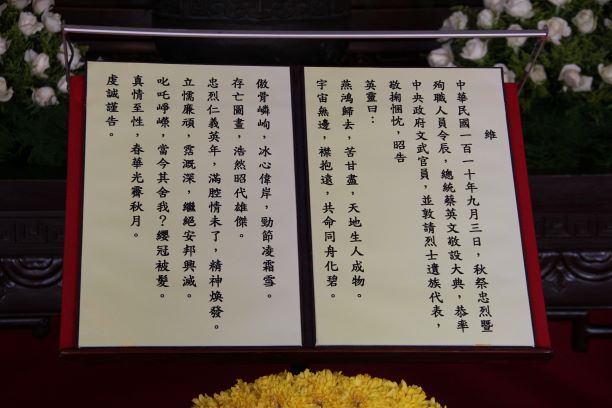 維
中華民國一百一十年九月三日，秋祭忠烈暨
殉職人員令辰，總統蔡英文敬設大典，恭率
中央政府文武官員，並敦請烈士遺族代表，
敬掬悃忱，昭告
英靈曰：
燕鴻歸去，苦甘盡，天地生人成物。
宇宙無邊，襟抱遠，共命同舟化碧。
傲骨嶙峋，冰心偉岸，勁節凌霜雪。
存亡圖畫，浩然昭代雄傑。
忠烈仁義英年，滿腔情未了，精神煥發。
立懦廉頑，霑溉深，繼絕安邦興滅。
叱吒崢嶸，當今其舍我？纓冠被髮。
真情至性，春華光霽秋月。
虔誠謹告。